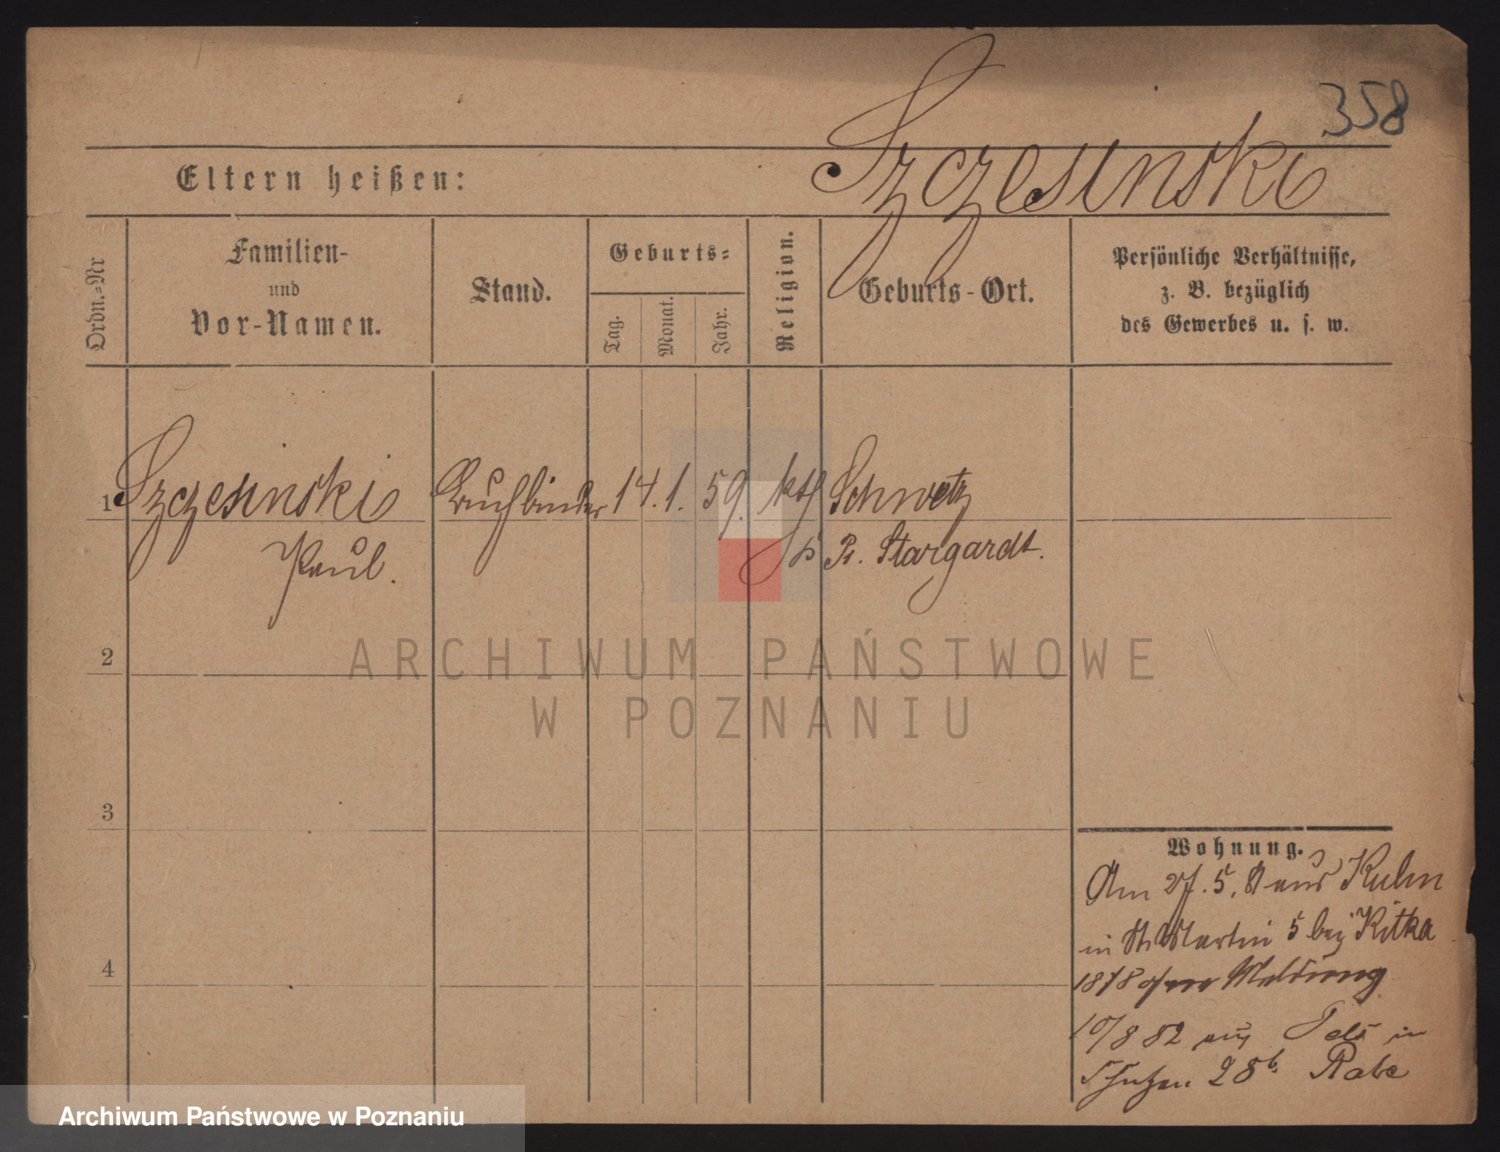 358
Szczesinski
Eltern heißen:
Ordn.-Nr
Familien-
und
Vor-Namen.
Stand.
Geburts-
Tag.
Monat.
Jahr.
Religion.
Geburts-Ort.
Persönliche Verhältnisse,
z. B. bezüglich
des Gewerbes u. s. w.
1 Szczesinski Buchbinder 14. 1. 59. kth Schwetz
Paul. Pr. Stargardt.
2
3
4
Wohnung.
Am 27. 5. aus Kulm
in St. Martin 5 bei Kitka
1878 ohne Meldung
10/8 82 aus in
Schützen 28b Rabe
ARCHIWUM PAŃSTWOWE
W POZNANIU
Archiwum Państwowe w Poznaniu